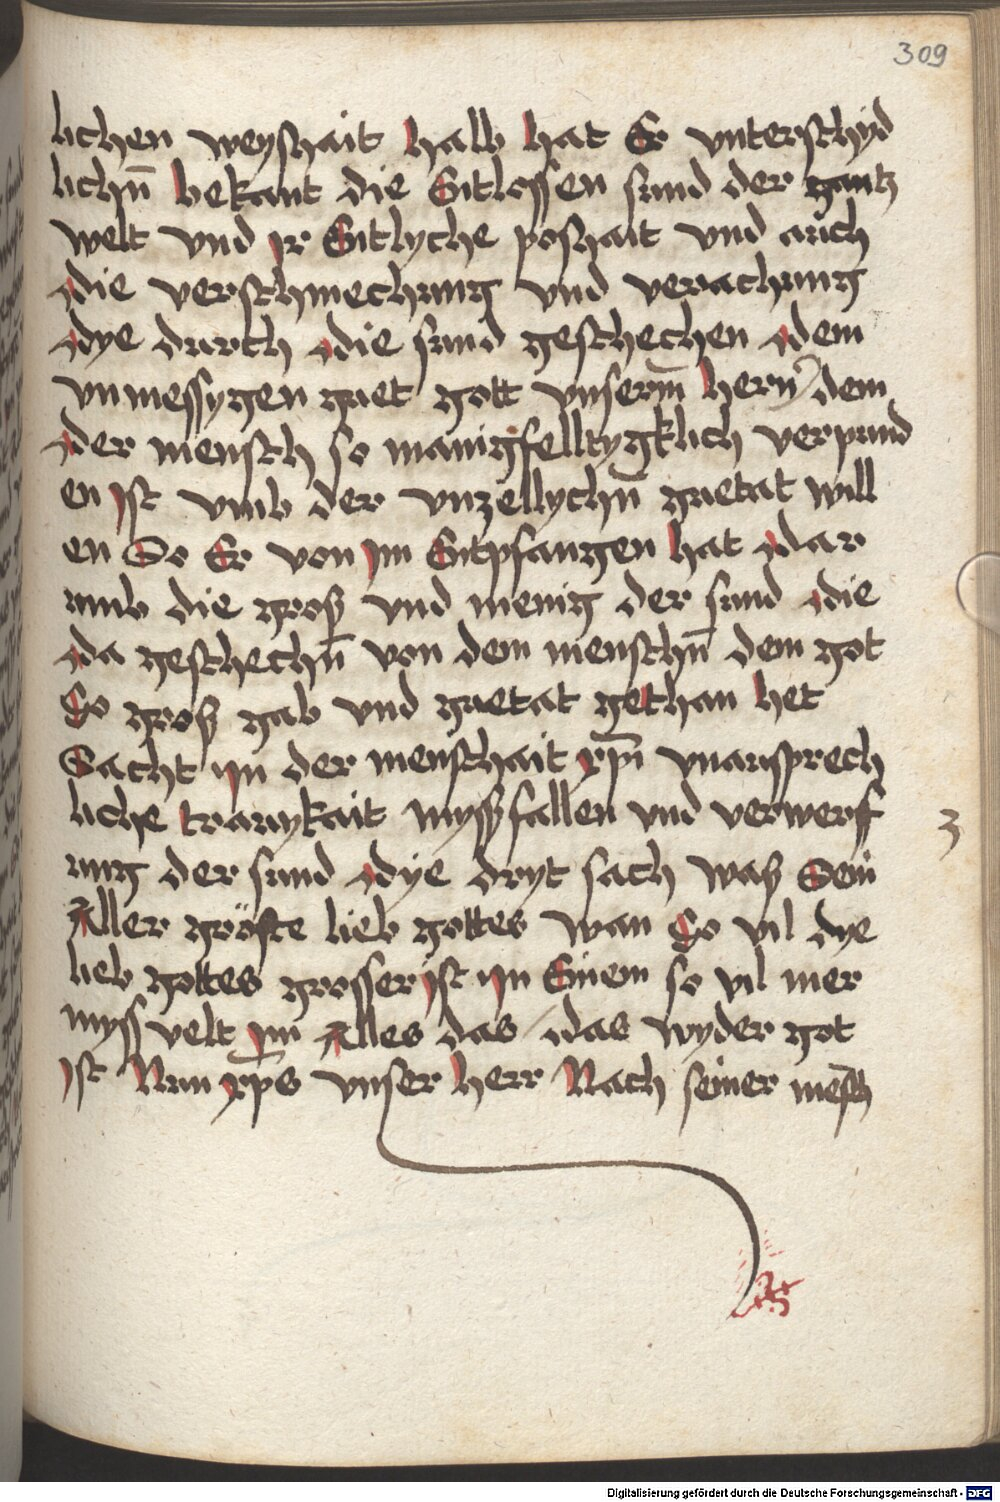 309
lichen weyshait halb hat Er vnterschyd
lichn̄ bekant die Eitlossen sund der gantz
welt vnd jr Eitlyche poshait vnd auch
die verschmechung vnd verachung
dye durch die sund geschechen dem
vnmessygen guet gott vnserm̄ hern dem
der mensch so manigfelltygklich verpund
en jst vmb der vnzellychn̄ guetat will
en So Er von jm Eitpfangen hat dar
umb die groß vnd menig der sund die
da geschechn̄ von dem menschn̄ dem got
So groß gab vnd guetat gethan het
Sacht jn der menschait xp̄i vnausprech
liche traurykait myßfallen vnd verwerf
ung der sund dye dryt sach waß Sein
3
Aller gröste lieb gottes wan So vil dye
lieb gottes grosser jst jn Einem so vil mer
myss velt jm Alles das das wyder got
jst Nun xp̄s vnser herr Nach seiner mēsch
Digitalisierung gefördert durch die Deutsche Forschungsgemeinschaft - DFG